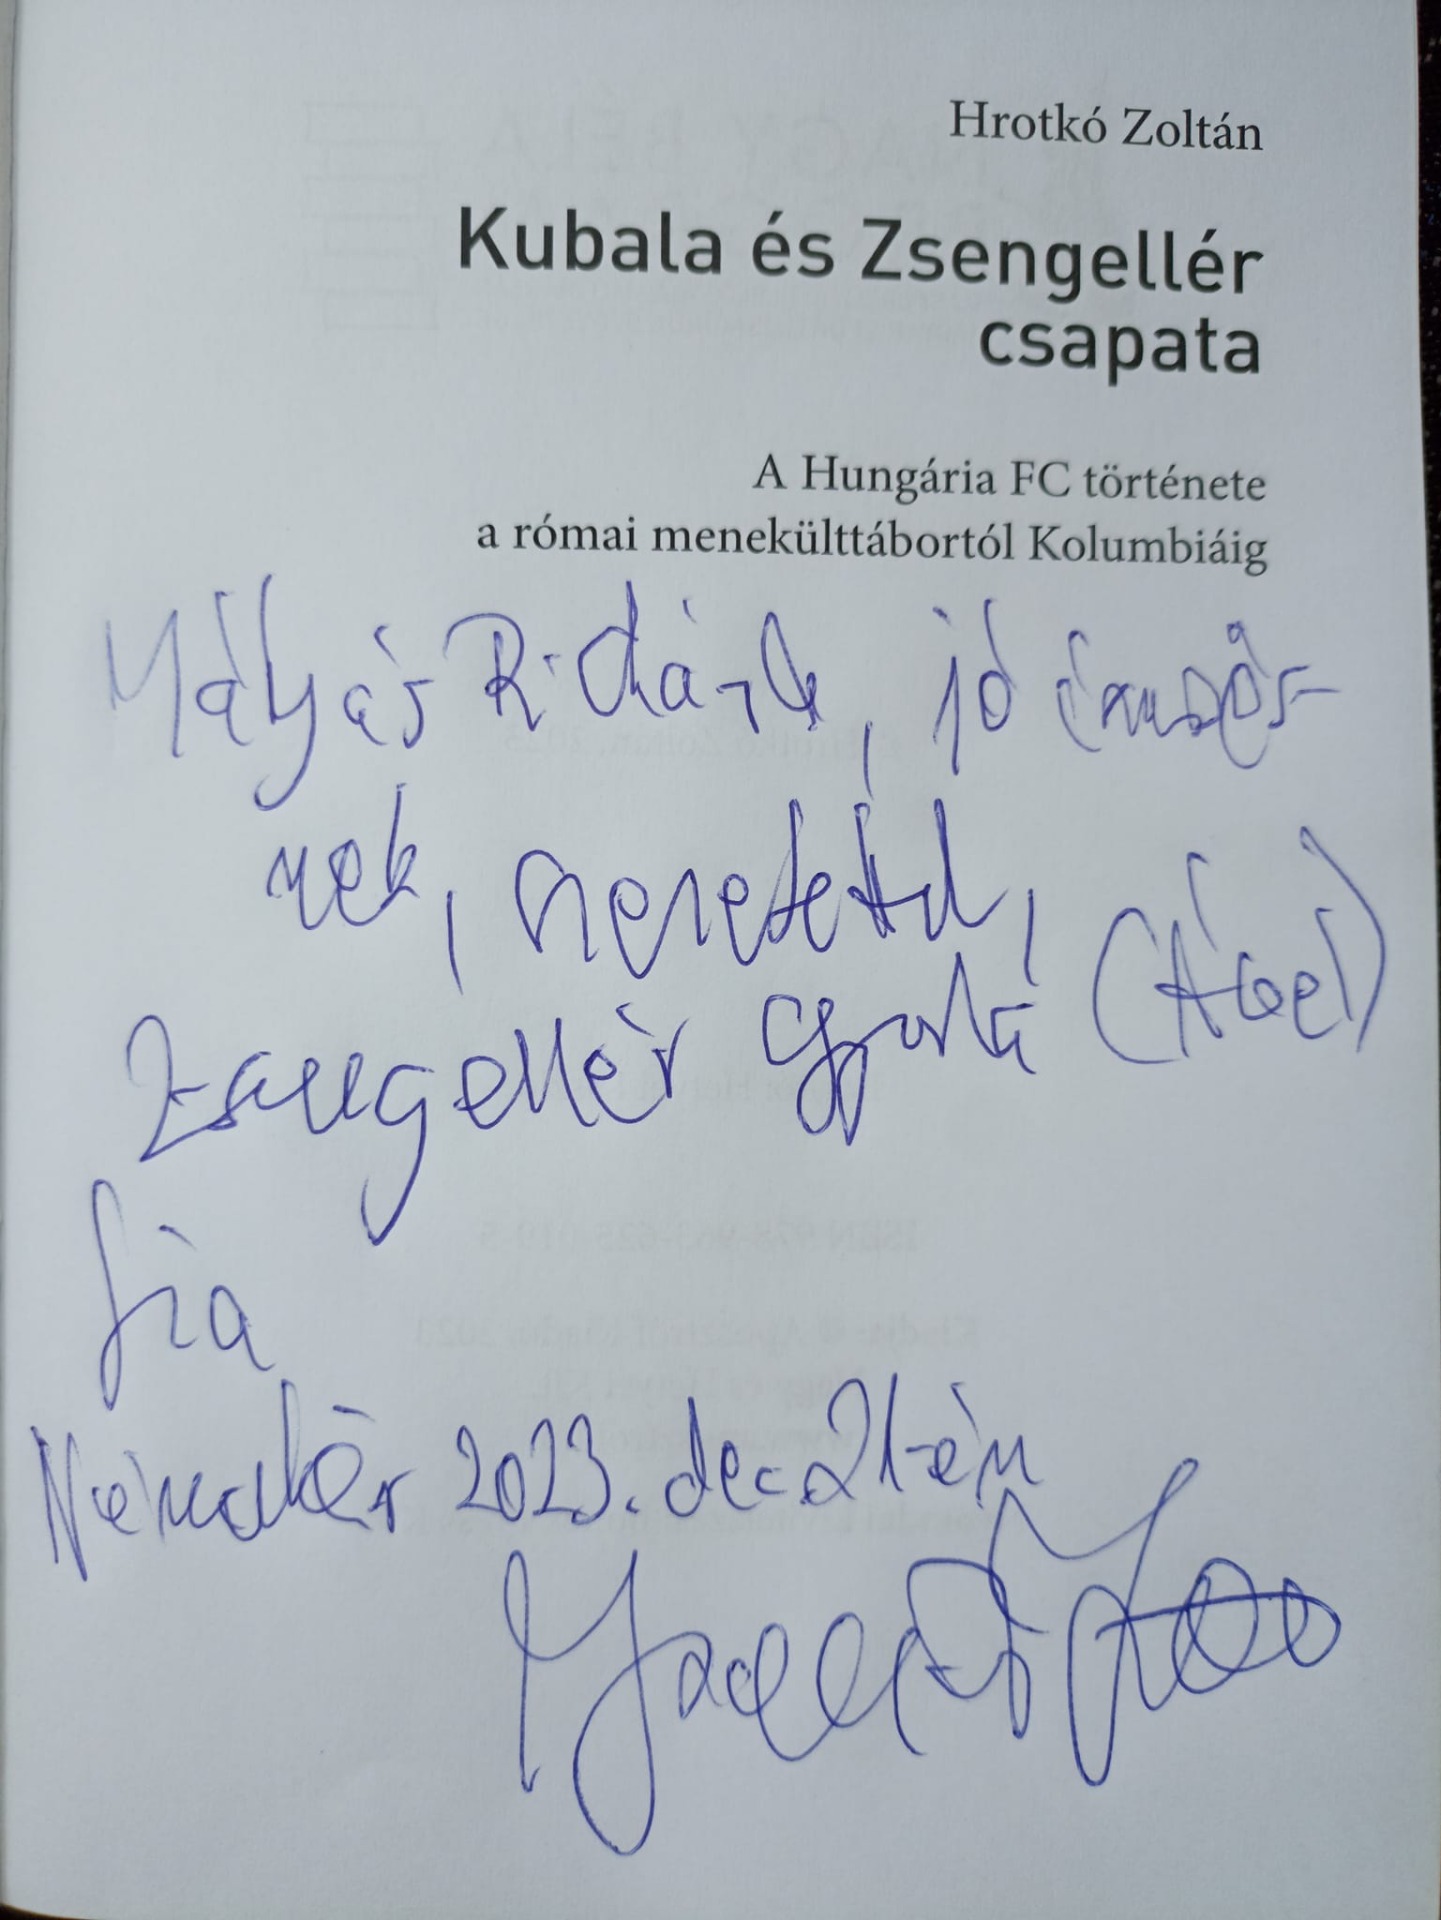 Hrotkó Zoltán
Kubala és Zsengellér
csapata
A Hungária FC története
a római menekülttábortól Kolumbiáig
Mátyás Richárd, jó
nek, szeretettel,
Zsengellér Gyula
fia
Nemeskér 2023. dec 21-én